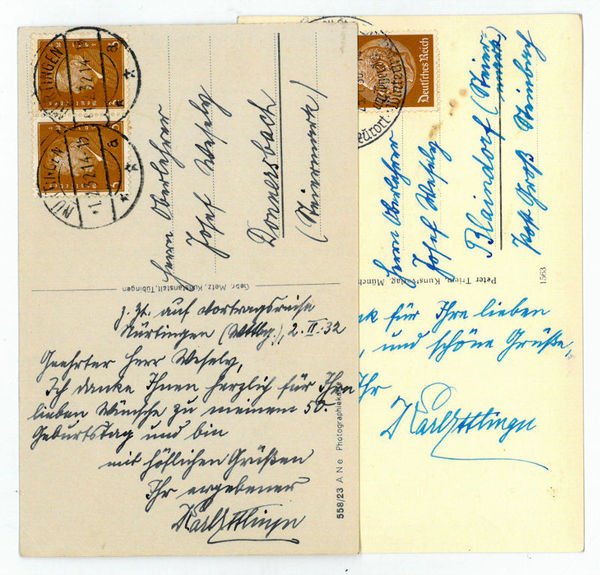 Herrn Oberlehrer
Josef Wesely
Donnersbach
(Steiermark)
Gebr. Metz, Kunstanstalt, Tübingen
z. Zt. auf Vortragsreise
Nürtingen (Wttbg.), 2. II. 32
Geehrter Herr Wesely,
Ich danke Ihnen herzlich für Ihre
lieben Wünsche zu meinem 50.
Geburtstag und bin
mit höflichen Grüßen
Ihr ergebener
Karl Ettlinger
558/23 A N e Photographiekarte
Deutsches Reich
Herrn Oberlehrer
Josef Wesely
Blaindorf (Steier-
mark)
Post Groß Steinbach
Peter Triem, Kunstverlag, Münch
1563
k für Ihre lieben
, und schöne Grüße,
Ihr
Karl Ettlinger